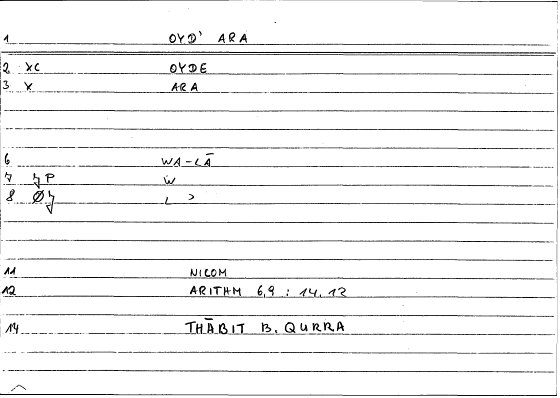 1 OYD' ARA
2 XC OYDE
3 X ARA
6 WA-LĀ
7 ϟ P W
8 Ø ϟ L ʾ
11 NICOM
12 ARITHM 6,9 : 14,12
14 THĀBIT B. QURRA